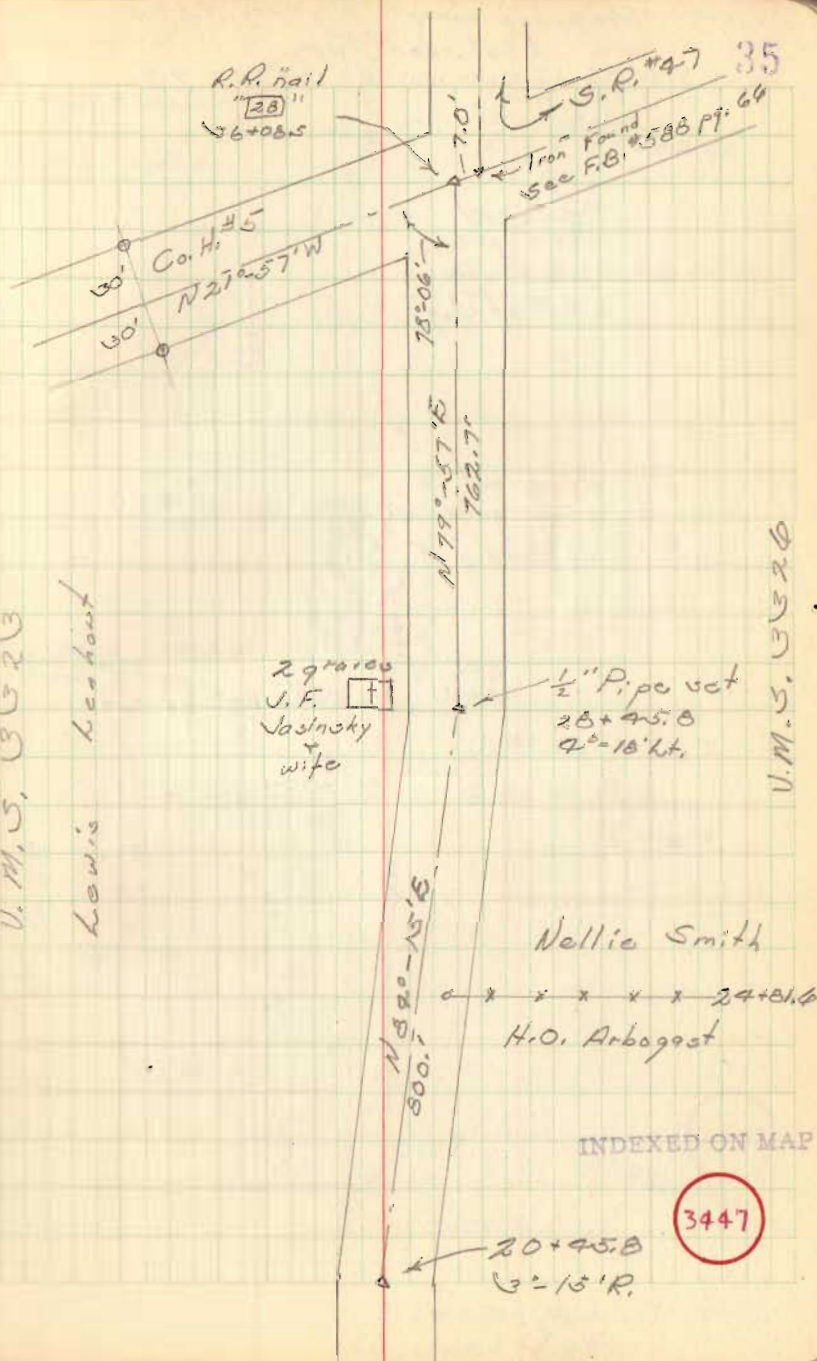 35
R.R. nail
"28"
36+08.5
7.0'
S.R. #47
Iron Found
See F.B. #588 pg. 64
Co. H. #5
N 21°-57'W
30'
30'
78°-06'
N 79°-57'E
762.7'
V.M.S. 3323
Lewis
V.M.S. 3326
2 graves
J.F.
Jasinsky
+
wife
1/2" Pipe set
28+45.8
4°-18' Lt.
N 84°-15'E
800.'
Nellie Smith
24+81.6
H.O. Arbogast
INDEXED ON MAP
3447
20+45.8
3°-15'R.